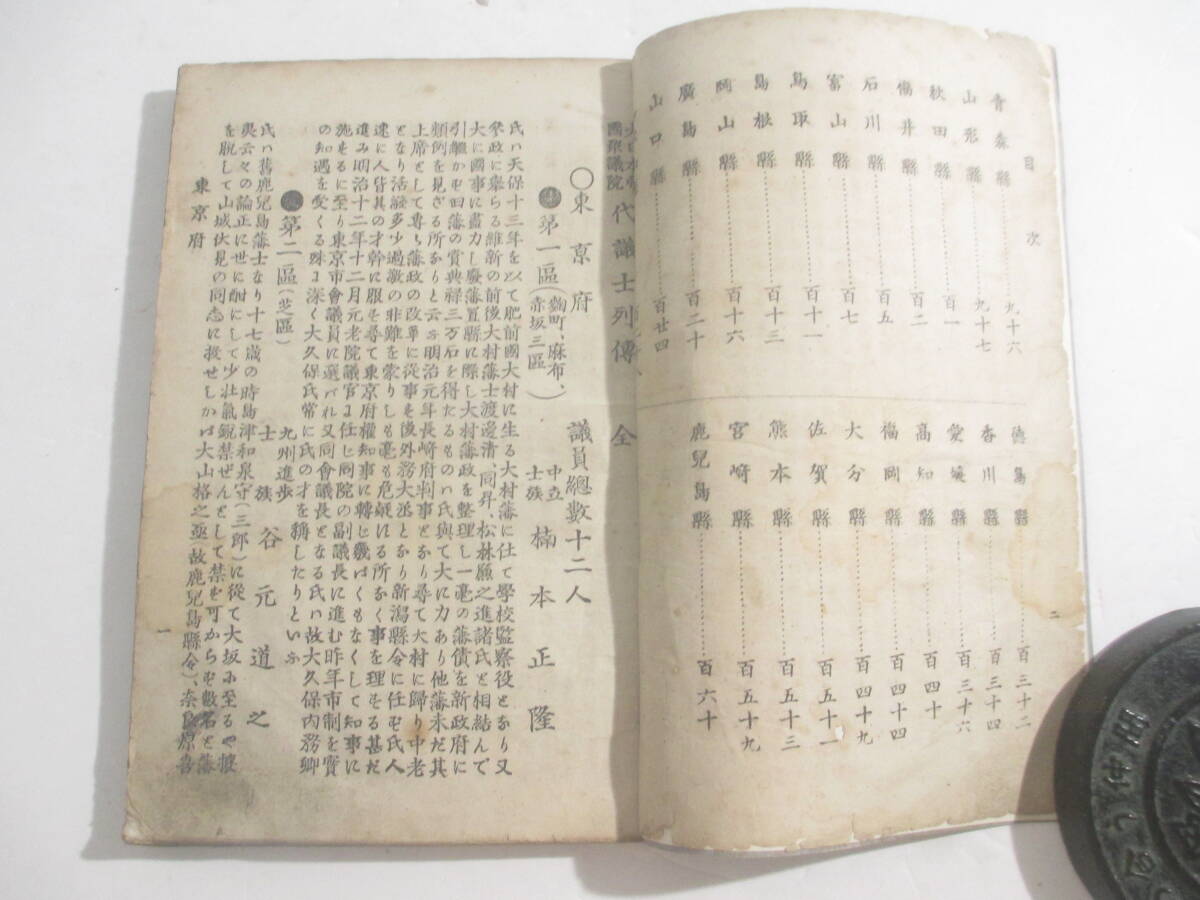 目次
青森縣 九十六
山形縣 九十七
秋田縣 百一
福井縣 百二
石川縣 百五
富山縣 百七
鳥取縣 百十一
島根縣 百十三
岡山縣 百十六
廣島縣 百二十
山口縣 百廿四
德島縣 百三十二
香川縣 百三十四
愛媛縣 百三十六
高知縣 百四十
福岡縣 百四十四
大分縣 百四十九
佐賀縣 百五十一
熊本縣 百五十三
宮崎縣 百五十九
鹿兒島縣 百六十
二
國衆議院代議士列傳 全
〇東京府 議員總數十二人
第一區(麴町、麻布、赤坂三區) 中立 士族 楠本正隆
氏ハ天保十三年を以て肥前國大村に生る大村藩に仕て學校監察役とかり又
參政に擧らる維新の前後大村藩士渡邊清、同昇、松林廉之進諸氏と相結んで
大に國事に盡力し廢藩置縣に際し大村藩政を整理し一毫の藩債を新政府に
引繼かず旧藩の賞典祿三万石を得たるもの氏與て大に力あり他藩未だ其
類例を見ざる所かりと云ふ明治元年長崎府判事とかり尋て大村に歸り中老
上席として專ら藩政の改革に從事を後外務大丞とかり新潟縣令に任ず氏人
となり活潑多少過激の非難を蒙りしも毫も危懼れる所かく事を理する甚だ
速に人皆其の才幹に服を尋て東京府權知事に轉じ幾はくもなくして知事に
進み明治十二年十二月元老院議官に任じ同院の副議長に進む昨年市制を實
施をるに至り東京市會議員に選バれ又同會議長となる氏ハ故大久保内務卿
の知遇を受くる殊に深く大久保氏常に氏の才を稱したりといふ
第二區(芝區) 九州進步 士族 谷元道之
氏ハ舊鹿兒島藩士なり十七歳の時島津和泉守(三郎)に從て大坂に至るや攘
夷云々の論正に世に酣にして少壯氣銳禁ぜんとして禁を可からず數名と藩
を脱して山城伏見の同志に投せしかバ大山格之亟(故鹿兒島縣令)、奈良原喜
東京府
一